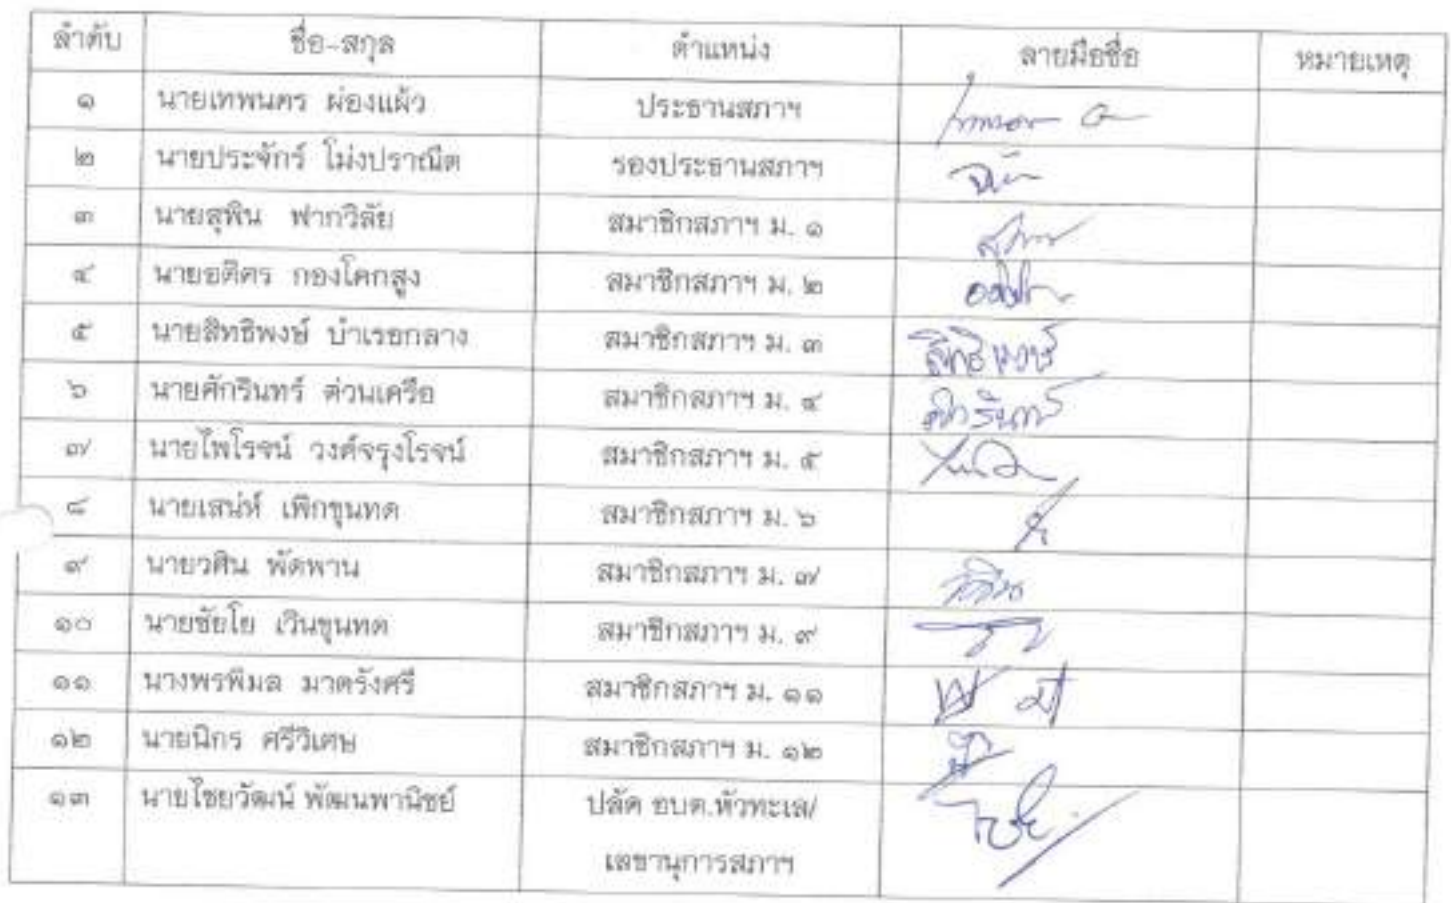 ลำดับ ชื่อ-สกุล ตำแหน่ง ลายมือชื่อ หมายเหตุ
๑ นายเทพนคร ผ่องแผ้ว ประธานสภาฯ
๒ นายประจักร์ โม่งปราณีต รองประธานสภาฯ
๓ นายสุพิน ฟากวิลัย สมาชิกสภาฯ ม. ๑
๔ นายอดิศร กองโคกสูง สมาชิกสภาฯ ม. ๒
๕ นายสิทธิพงษ์ บำเรอกลาง สมาชิกสภาฯ ม. ๓ สิทธิพงษ์
๖ นายศักรินทร์ ด่วนเครือ สมาชิกสภาฯ ม. ๔ ศักรินทร์
๗ นายไพโรจน์ วงศ์จรุงโรจน์ สมาชิกสภาฯ ม. ๕
๘ นายเสน่ห์ เพิกขุนทด สมาชิกสภาฯ ม. ๖
๙ นายวศิน พัดพาน สมาชิกสภาฯ ม. ๗
๑๐ นายชัยโย เวินขุนทด สมาชิกสภาฯ ม. ๙
๑๑ นางพรพิมล มาตรังศรี สมาชิกสภาฯ ม. ๑๑
๑๒ นายนิกร ศรีวิเศษ สมาชิกสภาฯ ม. ๑๒
๑๓ นายไชยวัฒน์ พัฒนพานิชย์ ปลัด อบต.หัวทะเล/
เลขานุการสภาฯ